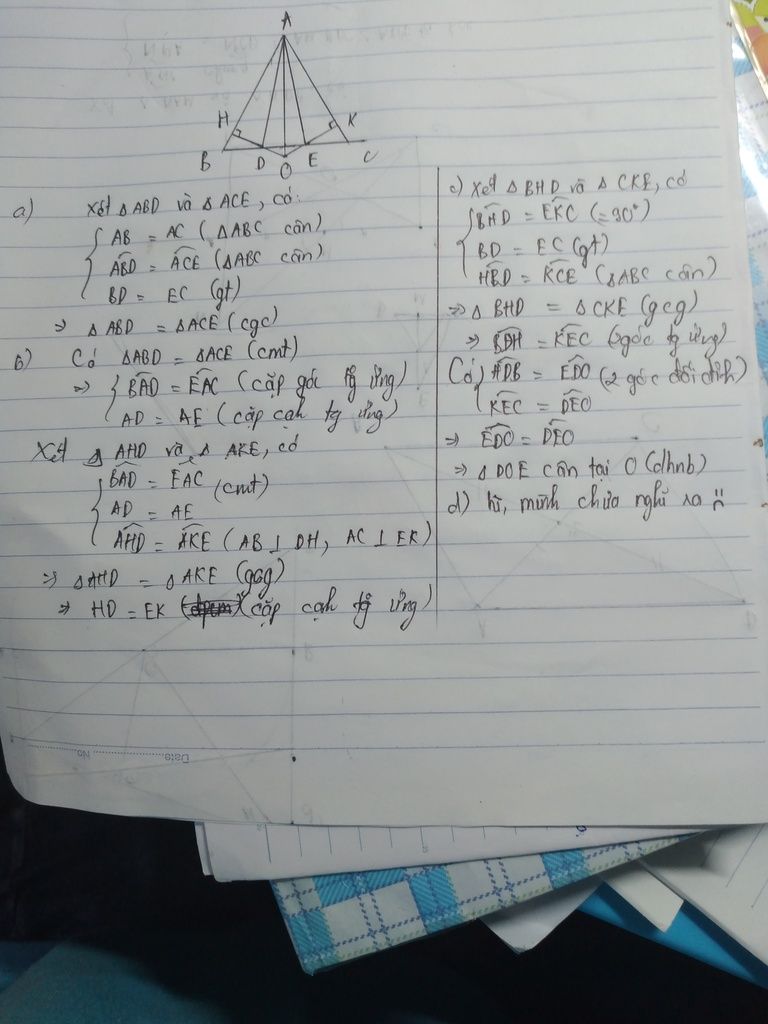 A
H
K
B
D
O
E
C
a) Xét Δ ABD và Δ ACE, có:
AB = AC (ΔABC cân)
ABD = ACE (ΔABC cân)
BD = EC (gt)
=> Δ ABD = ΔACE (cgc)
b) Có ΔABD = ΔACE (cmt)
=> BAD = EAC (cặp góc tg ứng)
AD = AE (cặp cạh tg ứng)
Xét Δ AHD và Δ AKE, có
BAD = EAC (cmt)
AD = AE
AHD = AKE (AB ⊥ DH, AC ⊥ EK)
=> ΔAHD = Δ AKE (gcg)
=> HD = EK (cặp cạh tg ứng)
c) Xét Δ BHD và Δ CKE, có
BHD = EKC (=90°)
BD = EC (gt)
HBD = KCE (ΔABC cân)
=> Δ BHD = Δ CKE (gcg)
=> BDH = KEC (2góc tg ứng)
Có HDB = EDO (2 góc đối đỉnh)
KEC = DEO
=> EDO = DEO
=> Δ DOE cân tại O (dhnb)
d) hì, mình chưa nghĩ ra
Date No.